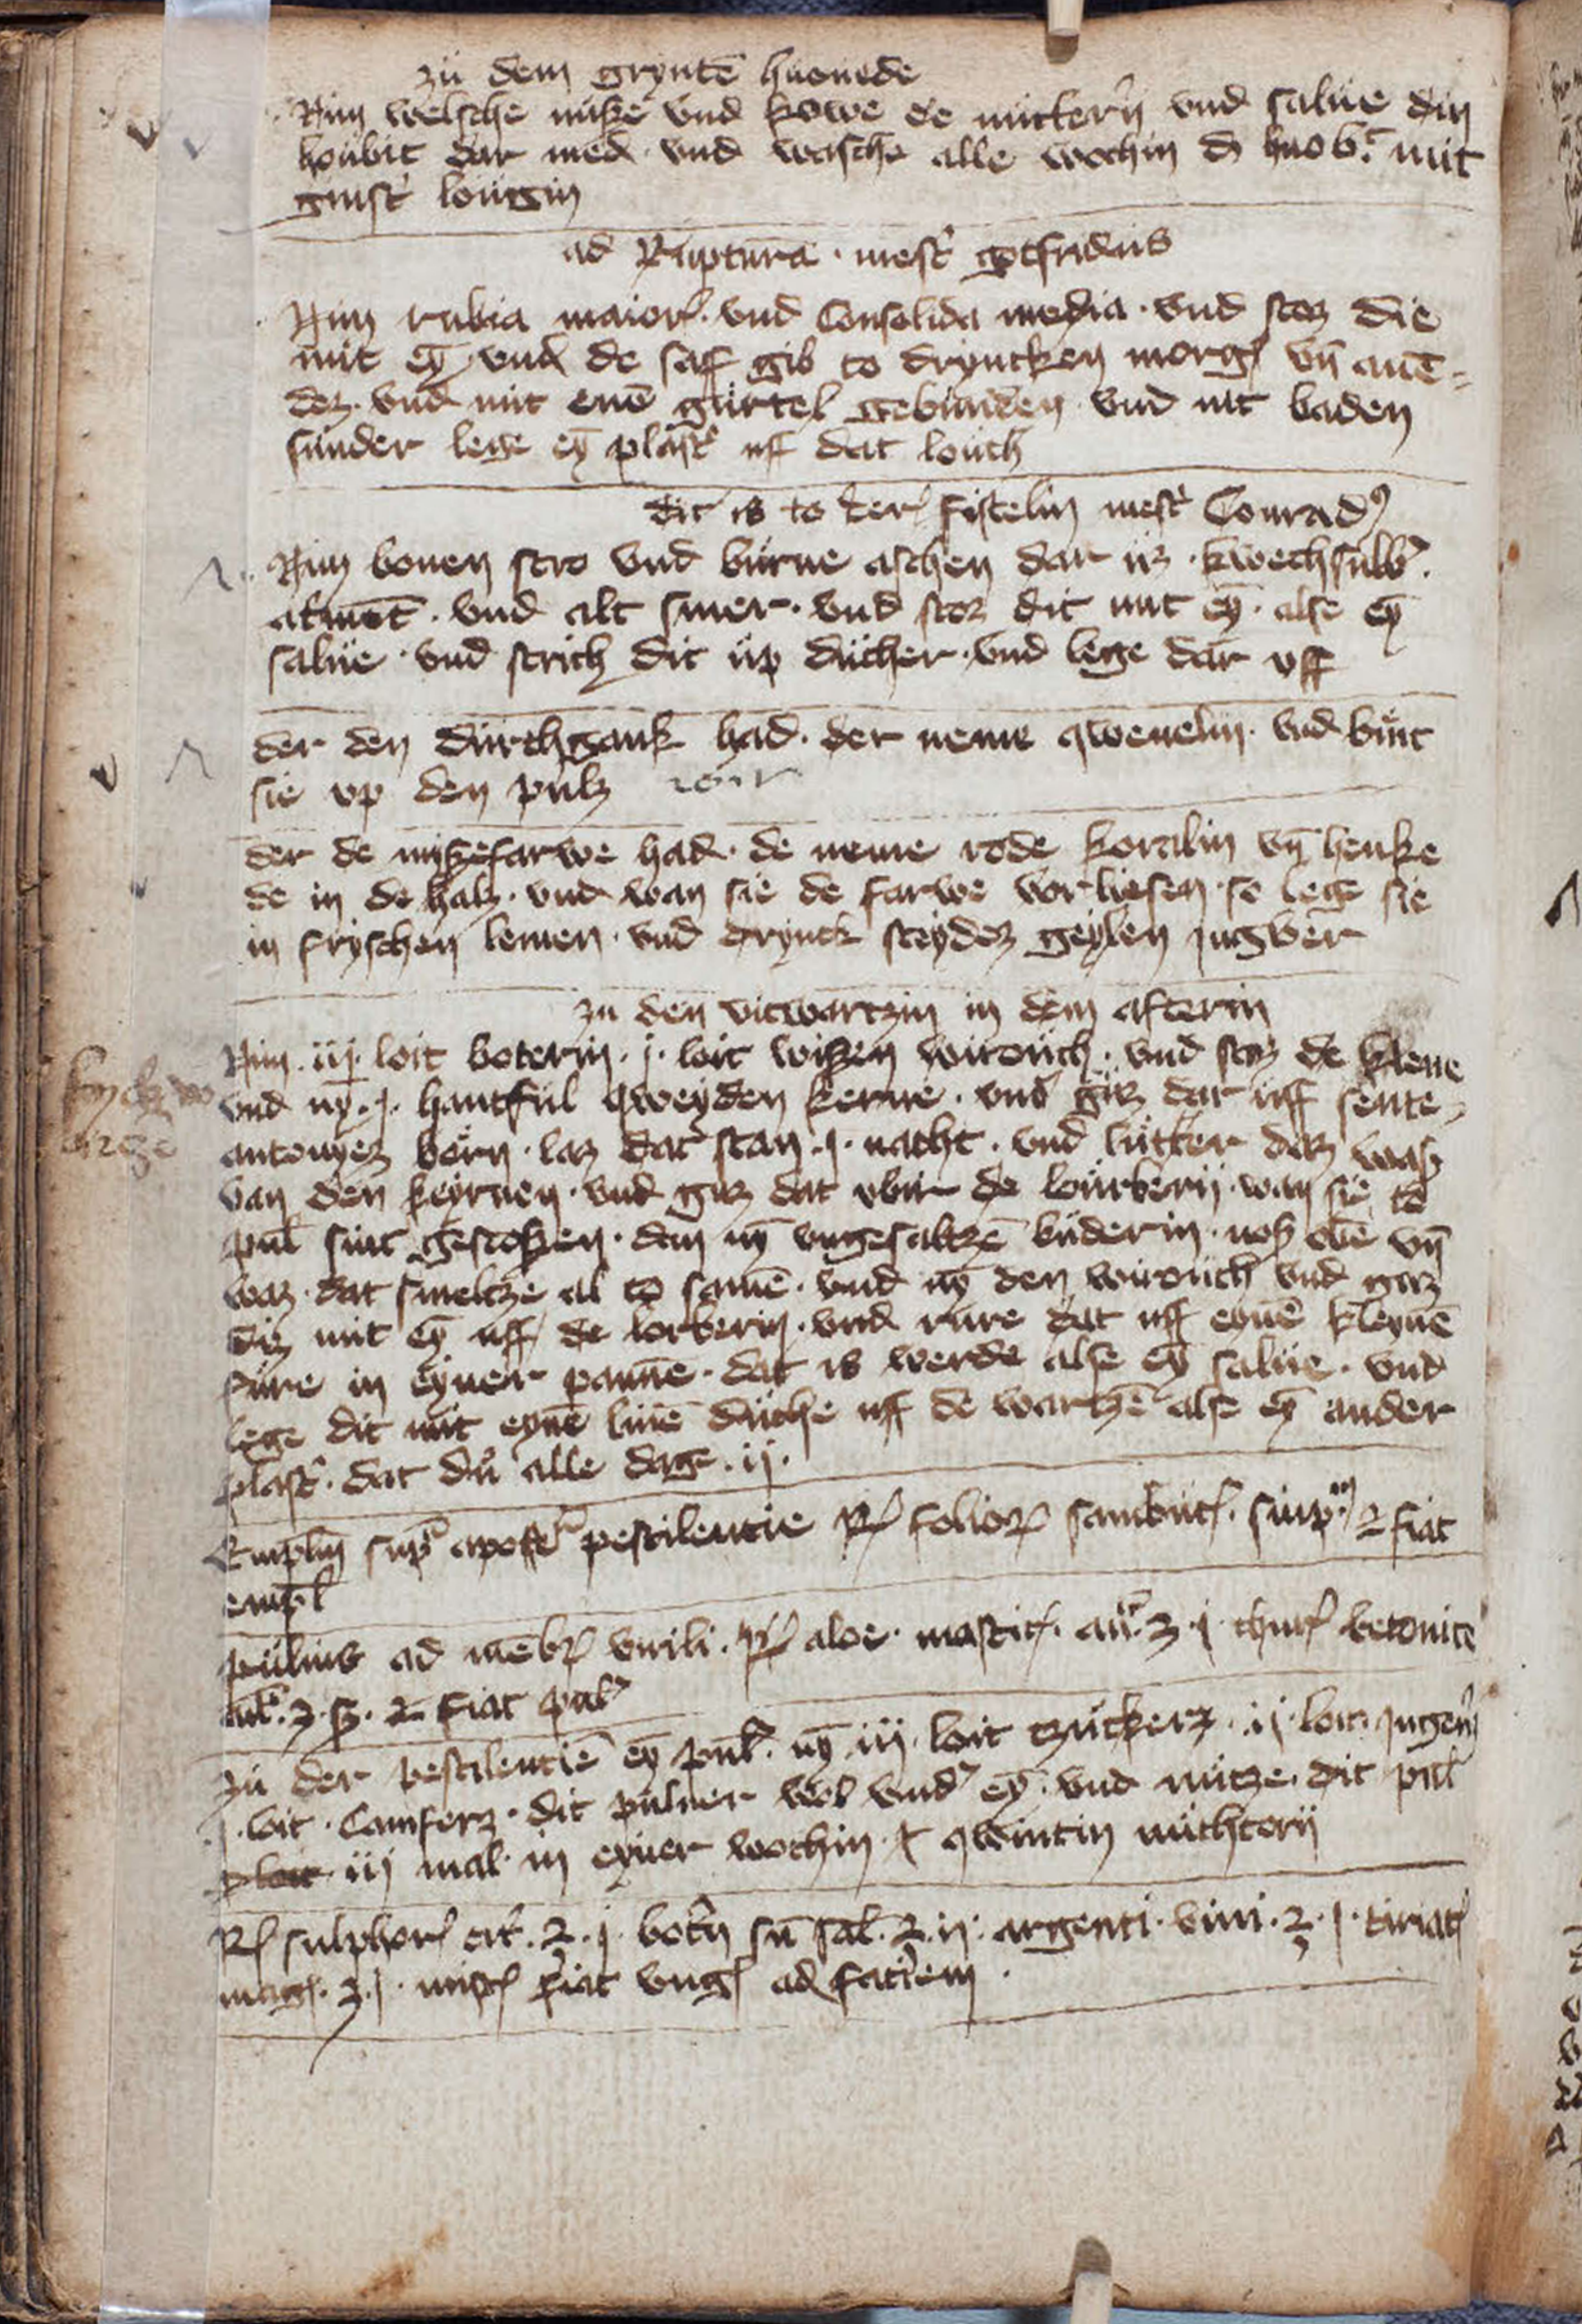 zü dem gryntē huouede
Nim welsche nüße vnd kowe de nüchtern vnd salüe din
houbit dar med vnd wasche alle wochin d huob't mit
ginst' lougin
ad Rüptura · mest' gotfridus
Nim rubia maior · vnd Consolida media · vnd stoz die
mit eȳ vnd de saff gib to dryncken morg vn̄ auē-
dez · vnd mit enē gürtel gebünden vnd nit baden
sunder lege eȳ plast' uff dat louch
dit is to der fistelin mest' Conrad9
Nim bonen stro vnd bürne aschen dar üz · kwechsulb'
atmēt · vnd alt smer · vnd stoz dit mit eȳ · alse eȳ
salüe · vnd strich dit üp dücher · vnd lege dar vff
der den dürchgank had · der neme qwenelin · vnd bint
sie vp den pülz
der de mißefarwe had · de neme rode koralin vn̄ henke
de in de halz · vnd wan sie de farwe vorliesen · so lege sie
in fryschen lemen · vnd drynck steydez geylen jngber
zu den vicwartzin in dem afterin
Nim · iij · loit boterin · j · loit wißen wirouch · vnd stoz de klene
vnd nȳ · j · hantfül qweyden kerne · vnd güz dar üff sente
antonyez born · laz dat stan · j · nacht · vnd lütter daz waß
van den keyrnen · vnd giz dat vbir de lourberij · wan sie to
pul' sint gestoßen · dan nȳ vngesaltzē büderin · noß olē vn̄
waz · dat smeltze al to samē · vnd nȳ den wirouch vnd güz
diz mit eȳ uff de lorberin · vnd rüre dat uff eynē kleynē
füre in eyner pannē · dat is werde alse eȳ salüe · vnd
lege dit mit eynē linē düche uff de wartzē alse eȳ ander
plast' · dat dü alle dage · ij ·
Emplm sup apost' pestilentie Rͤ folior sambuc · simp · fiat
empl
puluis ad mēbr virili · Rͤ aloe · mastic · an ʒ · j · thur betonice
an ʒ · ß · fiat pul'
zü der pestilentiē eȳ pul' · nȳ iij · loit tzückerz · ij · loit jngeu'
· j · loit · Camferz · dit pulner wol vnd' eȳ · vnd nütze dit pul'
iij mal in eyner wochin · j qwintin nüchtorn
Rͤ sulphor cit' · ʒ · j · bot'n sn̄ sal · ʒ · ij · argenti · viui · ʒ · j · tiriac
mag · ʒ · j · mist fiat vng ad faciem ·